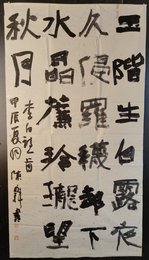 玉階生白露夜
久侵羅襪却下
水晶簾玲瓏望
秋月
李白詩一首
甲辰夏